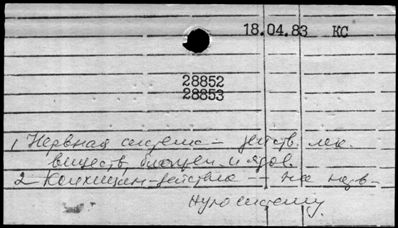 18.04.83 КС
28852
28853
1 Нервная система – действ. лек.
веществ, и ядов.
2 Колхицин – действие – на нерв-
ную систему